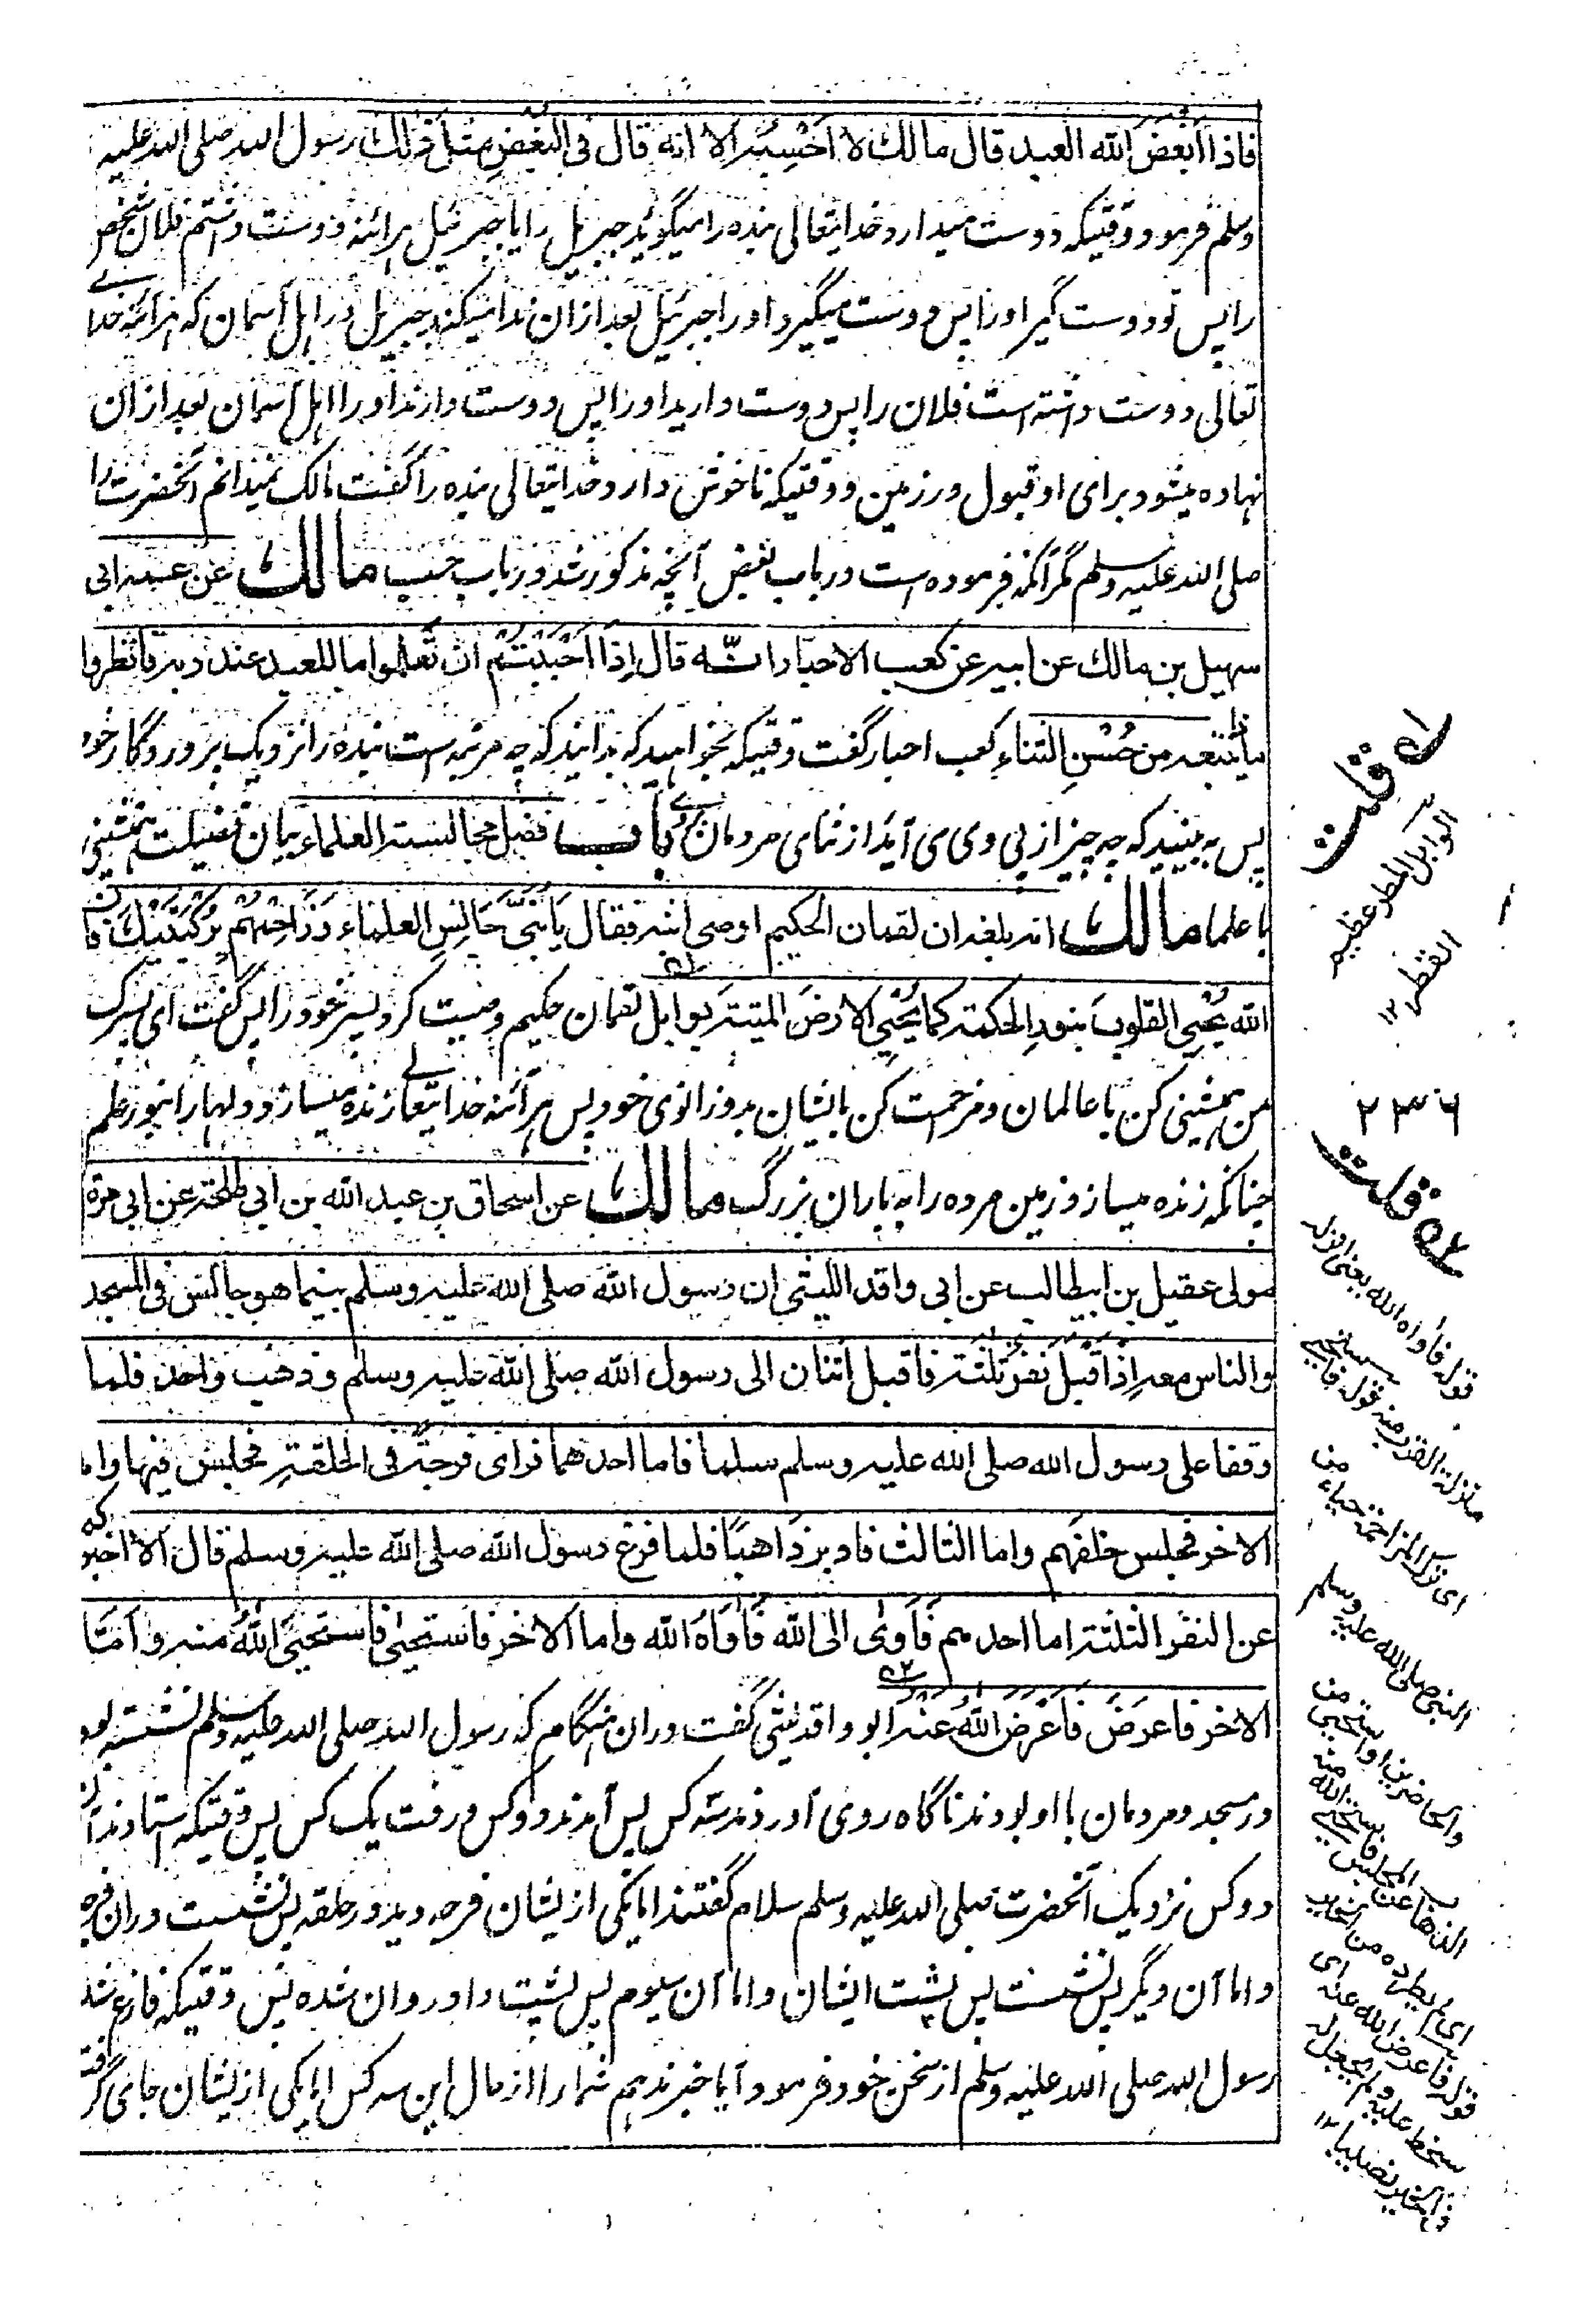 فاذا أَبْغَضَ الله العبد قال مالك لا اَحْسِبُه الا انه قال فى البُغْضِ مثل ذلك رسول الله صلى الله عليه
وسلم فرمود وقتیکه دوست میدارد خدایتعالى بنده را میگوید جبریل را یا جبرئیل هرآئنه دوست داشتم فلان شخص
را پس تو دوست گیر او را پس دوست میگیرد او را جبرئیل بعد ازان ندا میکند جبریل در اهل آسمان که هرآئنه خداے
تعالى دوست داشته است فلان را پس دوست دارید او را پس دوست دارند او را اهل آسمان بعد ازان
نهاده میشود براى او قبول در زمین و وقتیکه ناخوش دارد خدایتعالى بنده را گفت مالک نمیدانم آنحضرت را
صلى الله علیه وسلم مگر آنکه فرموده است در باب بغض آنچه مذکور شد در باب حب مالك عن عمه ابى
سهيل بن مالك عن ابيه عن كعب الاحبار انّه قال اِذَا اَحْبَبْتُم ان تَعلموا ما للعبد عند ربه فانظروا
ماذا يَتْبَعه من حُسْنِ الثناءِ کعب احبار گفت وقتیکه بخواهید که بدانید که چه مرتبه است بنده را نزدیک پروردگار خود
پس به بینید که چه چیز از پى وى مى آید از ثناى مردمان باب فضل مجالسة العلماء بیان فضیلت همنشینى
با علما مالك انه بلغه ان لقمان الحكيم اوصى ابنه فقال يَا بُنَيَّ جَالِسِ العلماءَ وَزَاحِمْهُم بِرُكْبَتَيْكَ فان
الله يُحْيِي القلوبَ بنورِ الحكمة كما يُحْيِي الارضَ الميتة بوابل لقمان حکیم وصیت کرد پسر خود را پس گفت اى پسرک
من همنشینى کن با عالمان و مزاحمت کن با ایشان بدو زانوى خود پس هرآئنه خدایتعالے زنده میسازد دلها را بنور علم
چنانکه زنده میسازد زمین مرده را به باران بزرگ مالك عن اسحاق بن عبد الله بن ابي طلحة عن ابي مرة
مولى عقيل بن ابيطالب عن ابى واقد الليثي ان رسول الله صلى الله عليه وسلم بينما هو جالس فى المسجد
والناس معه اِذْ اَقْبَلَ نَفَرٌ ثلثة فاقبل اثنان الى رسول الله صلى الله عليه وسلم وذهب واحد فلما
وقفا على رسول الله صلى الله عليه وسلم سلما فاما احدهما فراى فرجةً فى الحلقةِ فجلس فيها واما
الاخر فجلس خلفهم واما الثالث فادبر ذاهبًا فلما فرغ رسول الله صلى الله عليه وسلم قال الا اخبركم
عن النفر الثلثة اما احدهم فَأَوٰى الى الله فَأٰوَاهُ الله واما الاخر فاستحيٰى فاستحيَي اللهُ منه وامَّا
الاخر فاعرَضَ فَاَعْرَضَ اللهُ عنه ابو واقد لیثى گفت دران هنگام که رسول الله صلى الله علیه وسلم نشسته بود
در مسجد و مردمان با او بودند ناگاه روى آوردند سه کس پس آمدند دو کس و رفت یک کس پس وقتیکه استادند آن
دو کس نزدیک آنحضرت صلى الله علیه وسلم سلام گفتند اما یکى از ایشان فرجه دید در حلقه پس نشست دران فرجه
و اما آن دیگر پس نشست پس پشت ایشان و اما آن سیوم پس پشت داد روان شده پس وقتیکه فارغ شد
رسول الله صلى الله علیه وسلم از سخن خود فرمود آیا خبر ندهم شما را از حال این سه کس اما یکى از ایشان جاى گرفت
۵۱ قلت
الوابل المطر عظيم
القطر ۱۲
۲۳۶
۵۲ قلت
قوله فأواه الله يعنى انزله
منزلة القرب منه قوله فاستحيے
اى ترك المزاحمة حياء من
النبي صلى الله عليه وسلم
والحاضرين او استحيى من
الذهاب عن المجلس فاستحيے الله منه
اى لم يطرده من
قوله فاعرض الله عنه اى
سخط عليه ولم يجعل له
نصيبا ۱۲